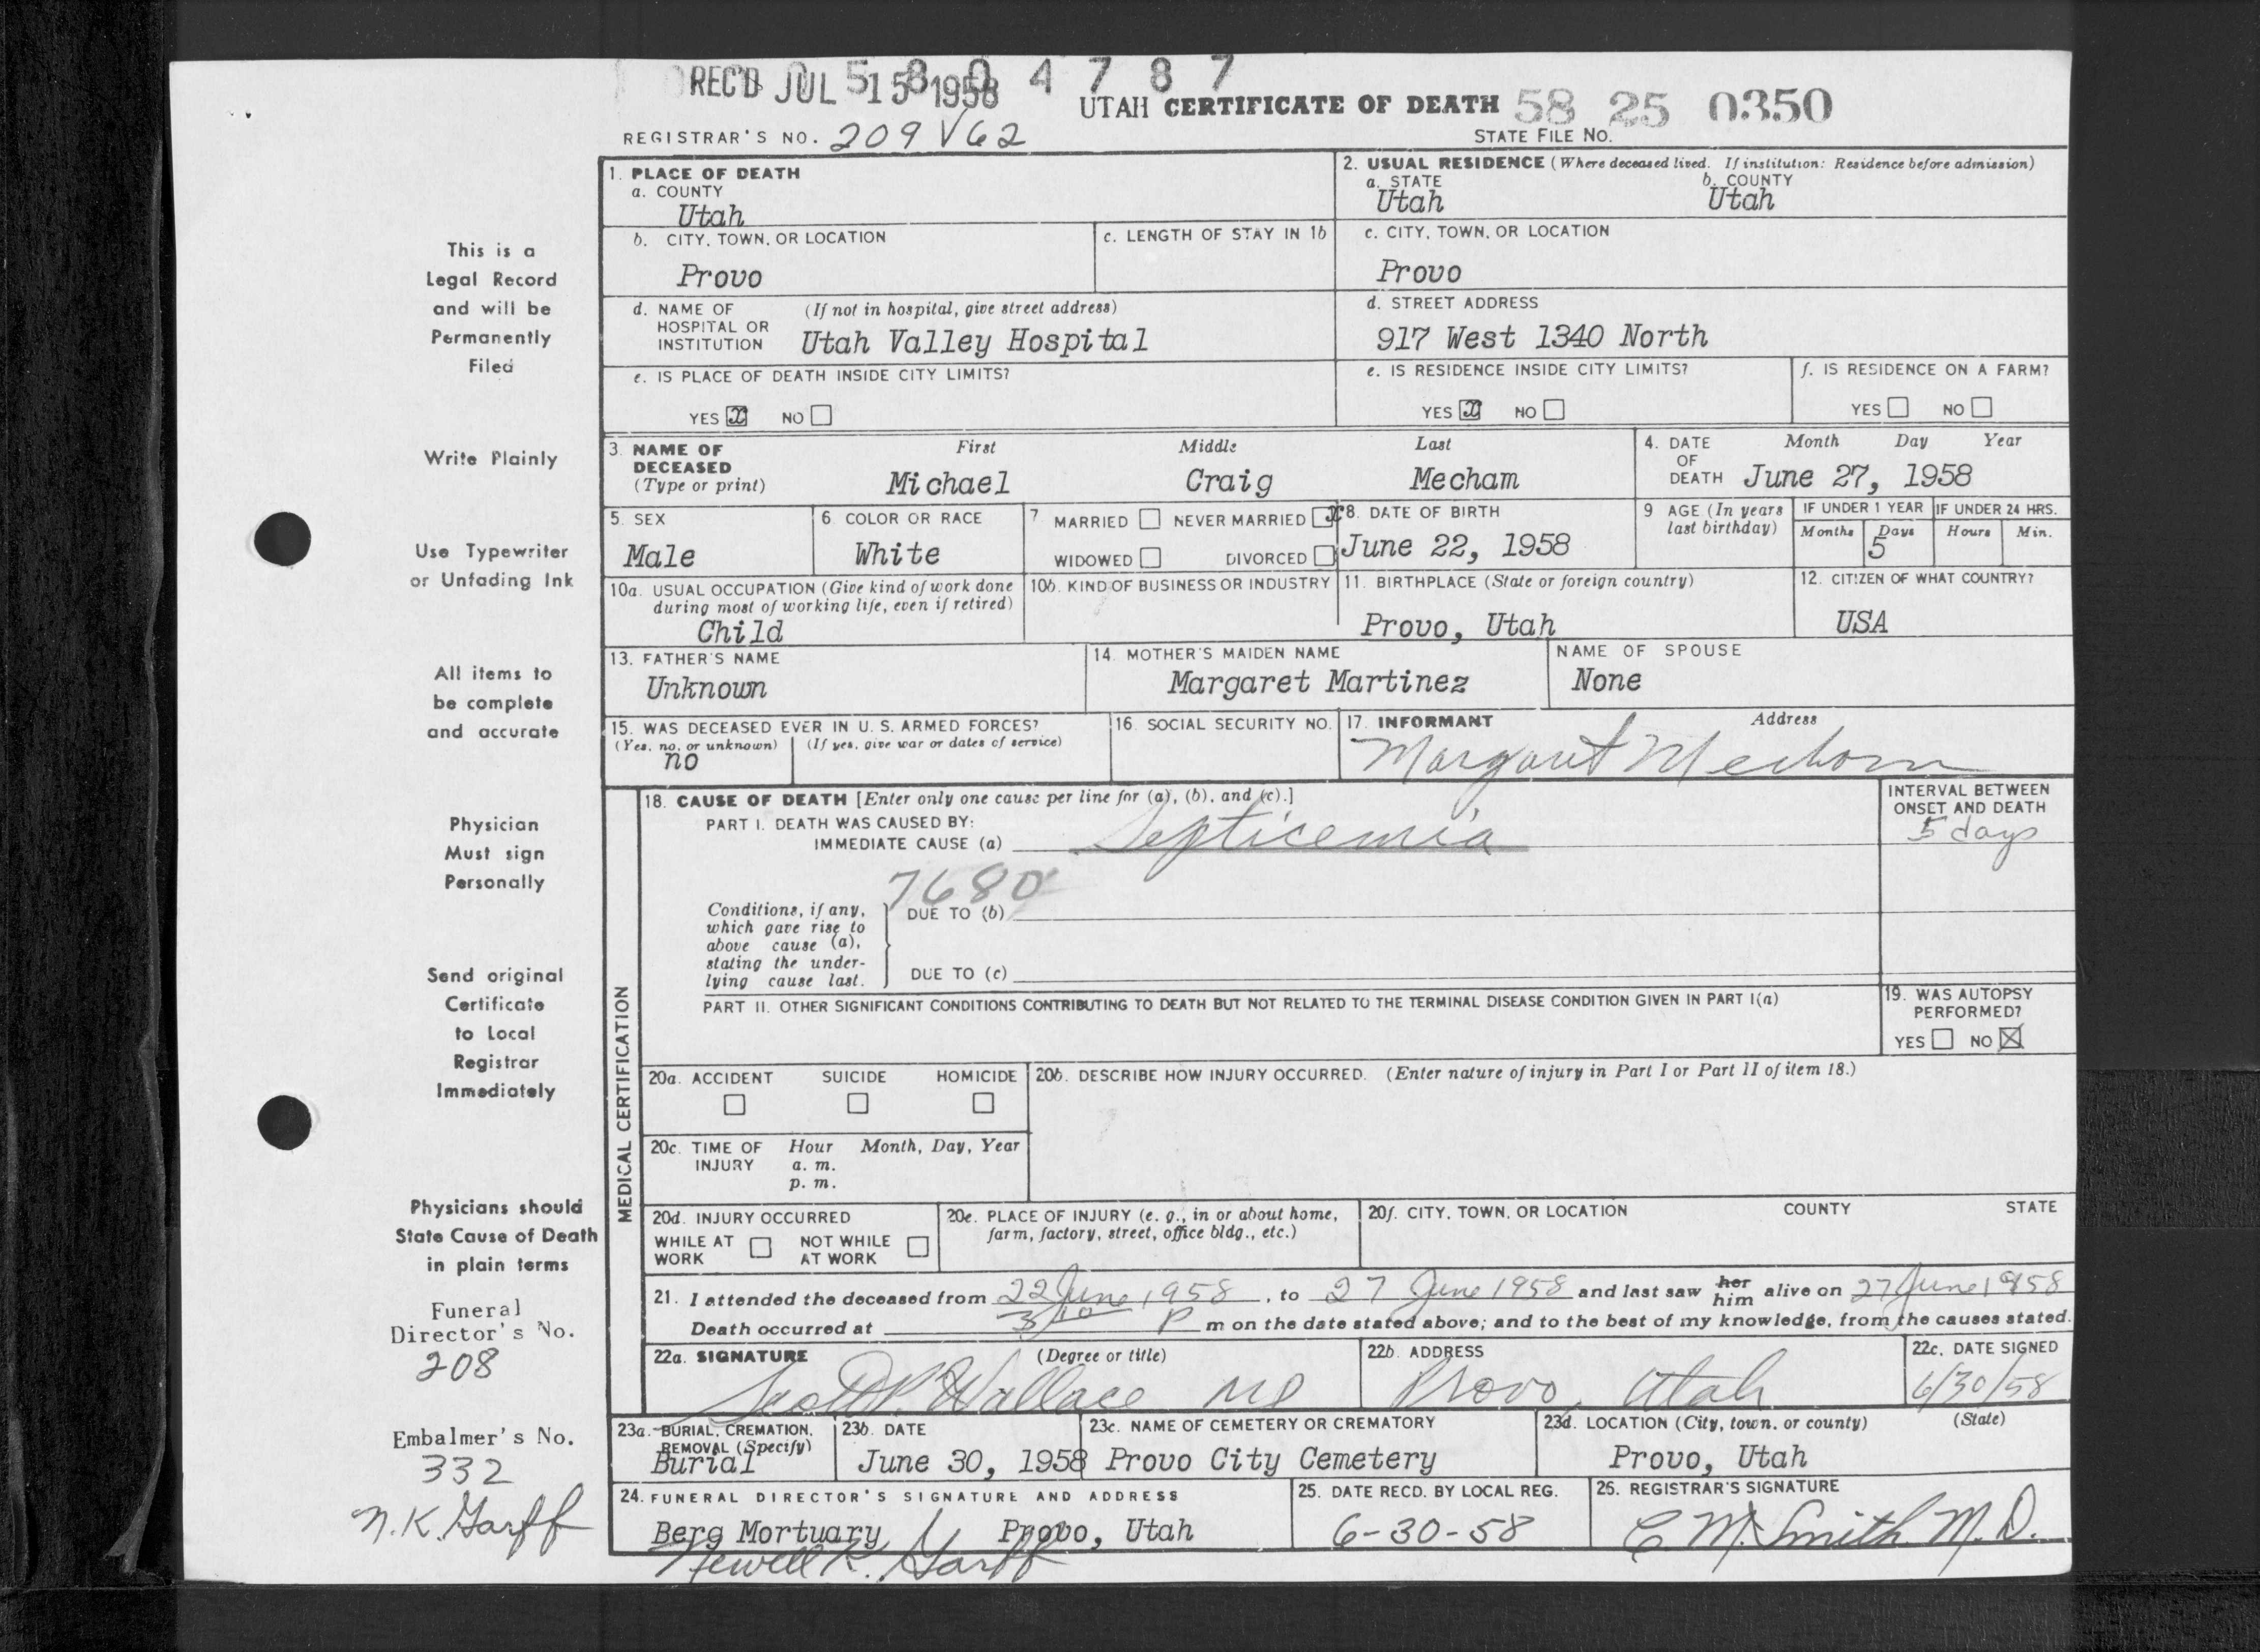 REC'D JUL 15 1958
5 8 0 4 7 8 7
UTAH CERTIFICATE OF DEATH 58 25 0350
REGISTRAR'S NO. 209 V62
STATE FILE NO.
This is a
Legal Record
and will be
Permanently
Filed
Write Plainly
Use Typewriter
or Unfading Ink
All items to
be complete
and accurate
Physician
Must sign
Personally
Send original
Certificate
to Local
Registrar
Immediately
Physicians should
State Cause of Death
in plain terms
Funeral
Director's No.
208
Embalmer's No.
332
N.K. Garff
1. PLACE OF DEATH
a. COUNTY
Utah
2. USUAL RESIDENCE (Where deceased lived. If institution: Residence before admission)
a. STATE b. COUNTY
Utah Utah
b. CITY, TOWN, OR LOCATION
Provo
c. LENGTH OF STAY IN 1b
c. CITY, TOWN, OR LOCATION
Provo
d. NAME OF (If not in hospital, give street address)
HOSPITAL OR
INSTITUTION Utah Valley Hospital
d. STREET ADDRESS
917 West 1340 North
e. IS PLACE OF DEATH INSIDE CITY LIMITS?
YES x NO
e. IS RESIDENCE INSIDE CITY LIMITS?
YES x NO
f. IS RESIDENCE ON A FARM?
YES NO
3. NAME OF
DECEASED
(Type or print)
First Middle Last
Michael Craig Mecham
4. DATE Month Day Year
OF
DEATH June 27, 1958
5. SEX
Male
6. COLOR OR RACE
White
7 MARRIED NEVER MARRIED x
WIDOWED DIVORCED
8. DATE OF BIRTH
June 22, 1958
9 AGE (In years
last birthday)
IF UNDER 1 YEAR IF UNDER 24 HRS.
Months Days Hours Min.
5
10a. USUAL OCCUPATION (Give kind of work done
during most of working life, even if retired)
Child
10b. KIND OF BUSINESS OR INDUSTRY
11. BIRTHPLACE (State or foreign country)
Provo, Utah
12. CITIZEN OF WHAT COUNTRY?
USA
13. FATHER'S NAME
Unknown
14. MOTHER'S MAIDEN NAME
Margaret Martinez
NAME OF SPOUSE
None
15. WAS DECEASED EVER IN U. S. ARMED FORCES?
(Yes, no, or unknown) (If yes, give war or dates of service)
no
16. SOCIAL SECURITY NO.
17. INFORMANT Address
Margaret Mecham
MEDICAL CERTIFICATION
18. CAUSE OF DEATH [Enter only one cause per line for (a), (b), and (c).]
PART I. DEATH WAS CAUSED BY:
IMMEDIATE CAUSE (a) Septicemia
INTERVAL BETWEEN
ONSET AND DEATH
5 days
7680
Conditions, if any,
which gave rise to
above cause (a),
stating the under-
lying cause last.
DUE TO (b)
DUE TO (c)
PART II. OTHER SIGNIFICANT CONDITIONS CONTRIBUTING TO DEATH BUT NOT RELATED TO THE TERMINAL DISEASE CONDITION GIVEN IN PART I(a)
19. WAS AUTOPSY
PERFORMED?
YES NO X
20a. ACCIDENT SUICIDE HOMICIDE
20b. DESCRIBE HOW INJURY OCCURRED. (Enter nature of injury in Part I or Part II of item 18.)
20c. TIME OF Hour Month, Day, Year
INJURY a. m.
p. m.
20d. INJURY OCCURRED
WHILE AT NOT WHILE
WORK AT WORK
20e. PLACE OF INJURY (e. g., in or about home,
farm, factory, street, office bldg., etc.)
20f. CITY, TOWN, OR LOCATION COUNTY STATE
21. I attended the deceased from 22 June 1958, to 27 June 1958 and last saw her him alive on 27 June 1958
Death occurred at 3 10 P m on the date stated above; and to the best of my knowledge, from the causes stated.
22a. SIGNATURE (Degree or title)
Scott P. Wallace MD
22b. ADDRESS
Provo, Utah
22c. DATE SIGNED
6/30/58
23a. BURIAL, CREMATION,
REMOVAL (Specify)
Burial
23b. DATE
June 30, 1958
23c. NAME OF CEMETERY OR CREMATORY
Provo City Cemetery
23d. LOCATION (City, town, or county) (State)
Provo, Utah
24. FUNERAL DIRECTOR'S SIGNATURE AND ADDRESS
Berg Mortuary Provo, Utah
Newell K. Garff
25. DATE RECD. BY LOCAL REG.
6-30-58
26. REGISTRAR'S SIGNATURE
C. M. Smith M.D.